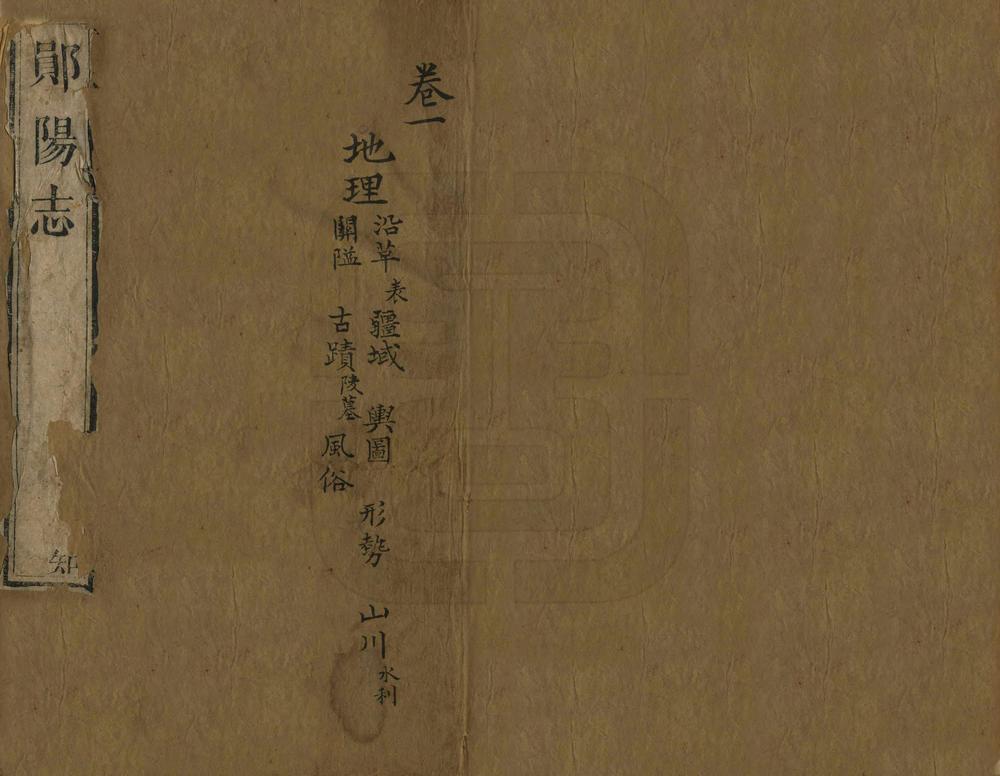 卷一
地理
沿革表 疆域 輿圖 形勢 山川水利
關隘 古蹟陵墓 風俗
鄖陽志
知